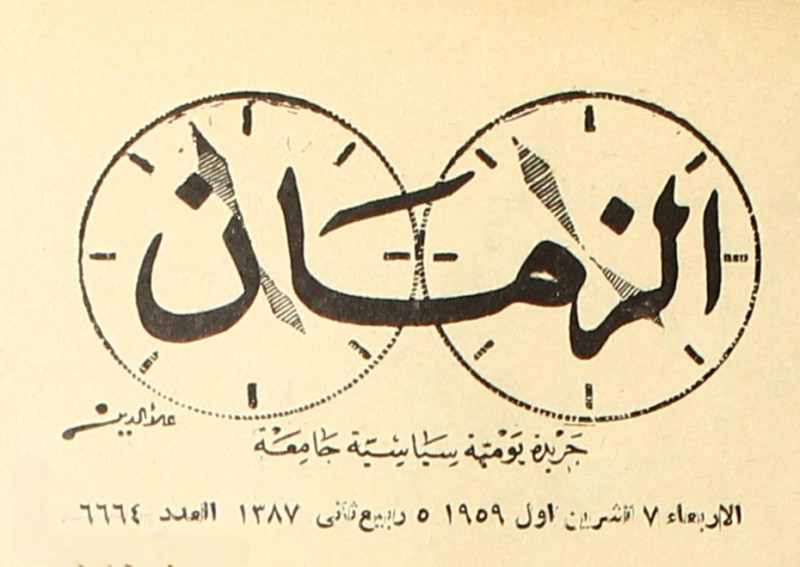 الزمان
علاء الدين
جَريدة يَوميّة سِيَاسِيّة جَامِعَة
الاربعاء ٧ تشرين اول ١٩٥٩ ٥ ربيع ثاني ١٣٨٧ العدد ٦٦٦٤